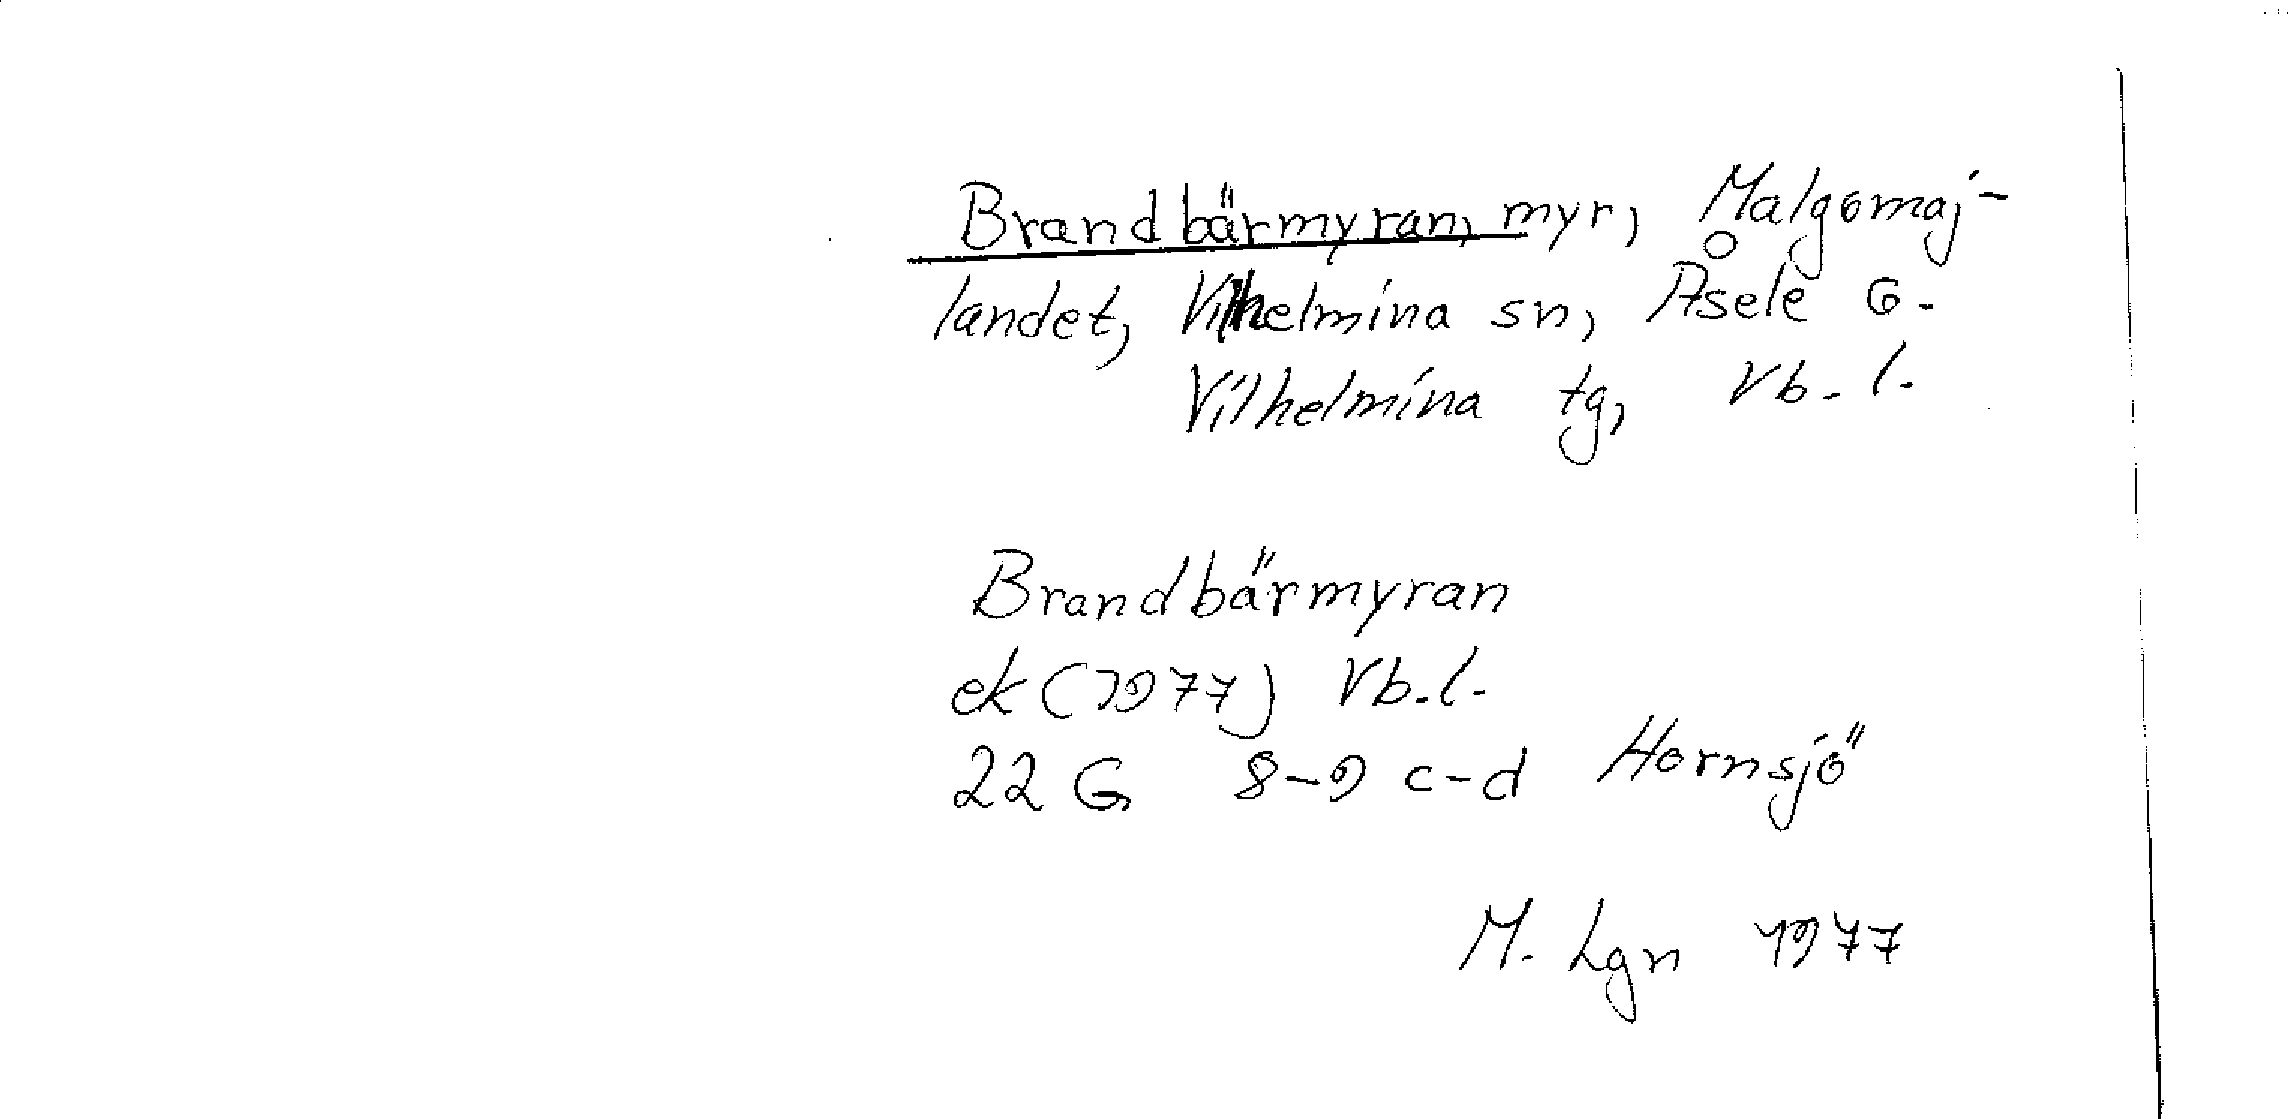 Brandbärmyran, myr, Malgomaj-
landet, Vilhelmina sn, Åsele o.
Vilhelmina tg, Vb. l.
Brandbärmyran
ek (1977) Vb. l.
22 G 8-9 c-d Hornsjö
M. Lgn 1977